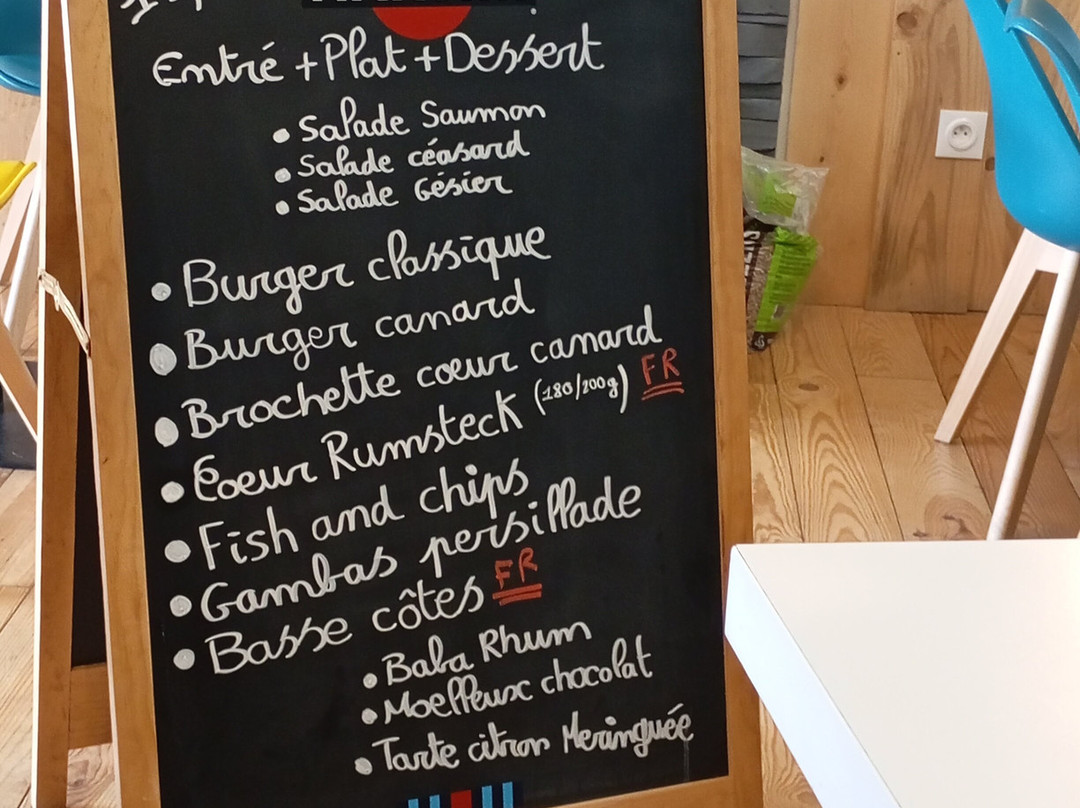 Entré + Plat + Dessert
• Salade Saumon
• Salade céasard
• Salade Gésier
• Burger classique
• Burger canard
• Brochette cœur canard
• Coeur Rumsteck (180/200g) FR
• Fish and chips
• Gambas persillade
• Basse côtes FR
• Baba Rhum
• Moelleux chocolat
• Tarte citron Meringuée